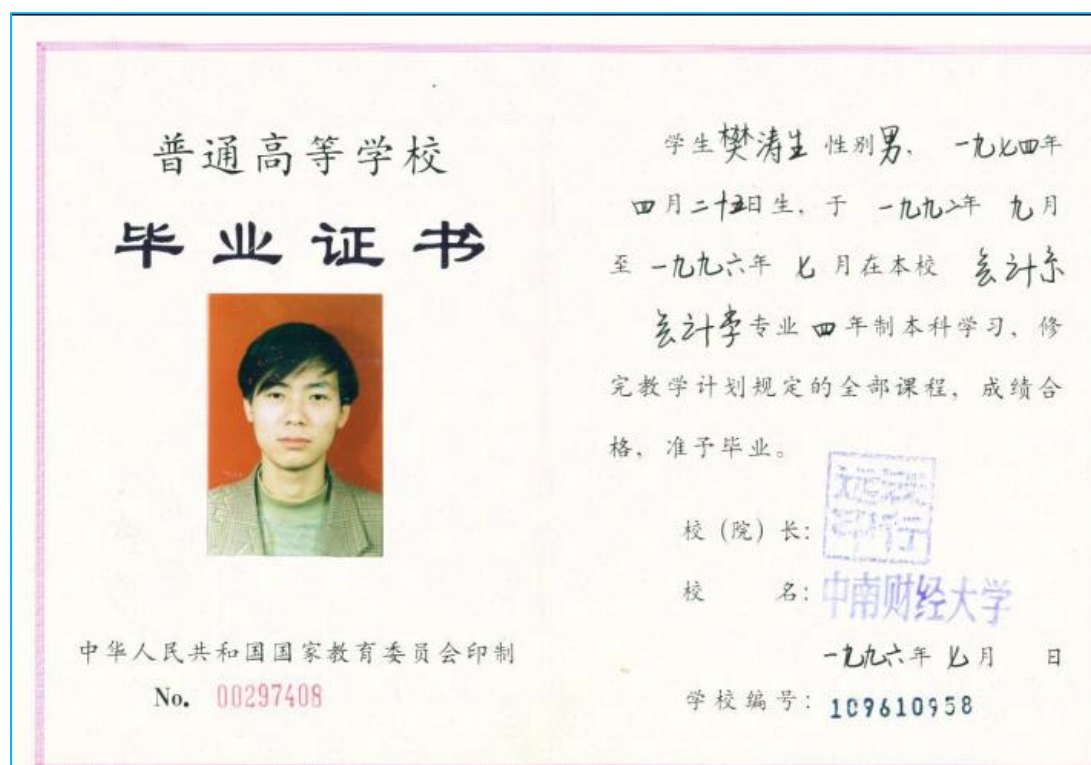 普通高等学校
毕业证书
中华人民共和国国家教育委员会印制
No. 00297408
学生樊涛生 性别男, 一九七四年
四月二十五日生, 于 一九九二年 九月
至 一九九六年 七月在本校 会计系
会计学专业 四年制本科学习, 修
完教学计划规定的全部课程, 成绩合
格, 准予毕业。
校(院)长:
校 名: 中南财经大学
一九九六年 七月 日
学校编号: 109610958